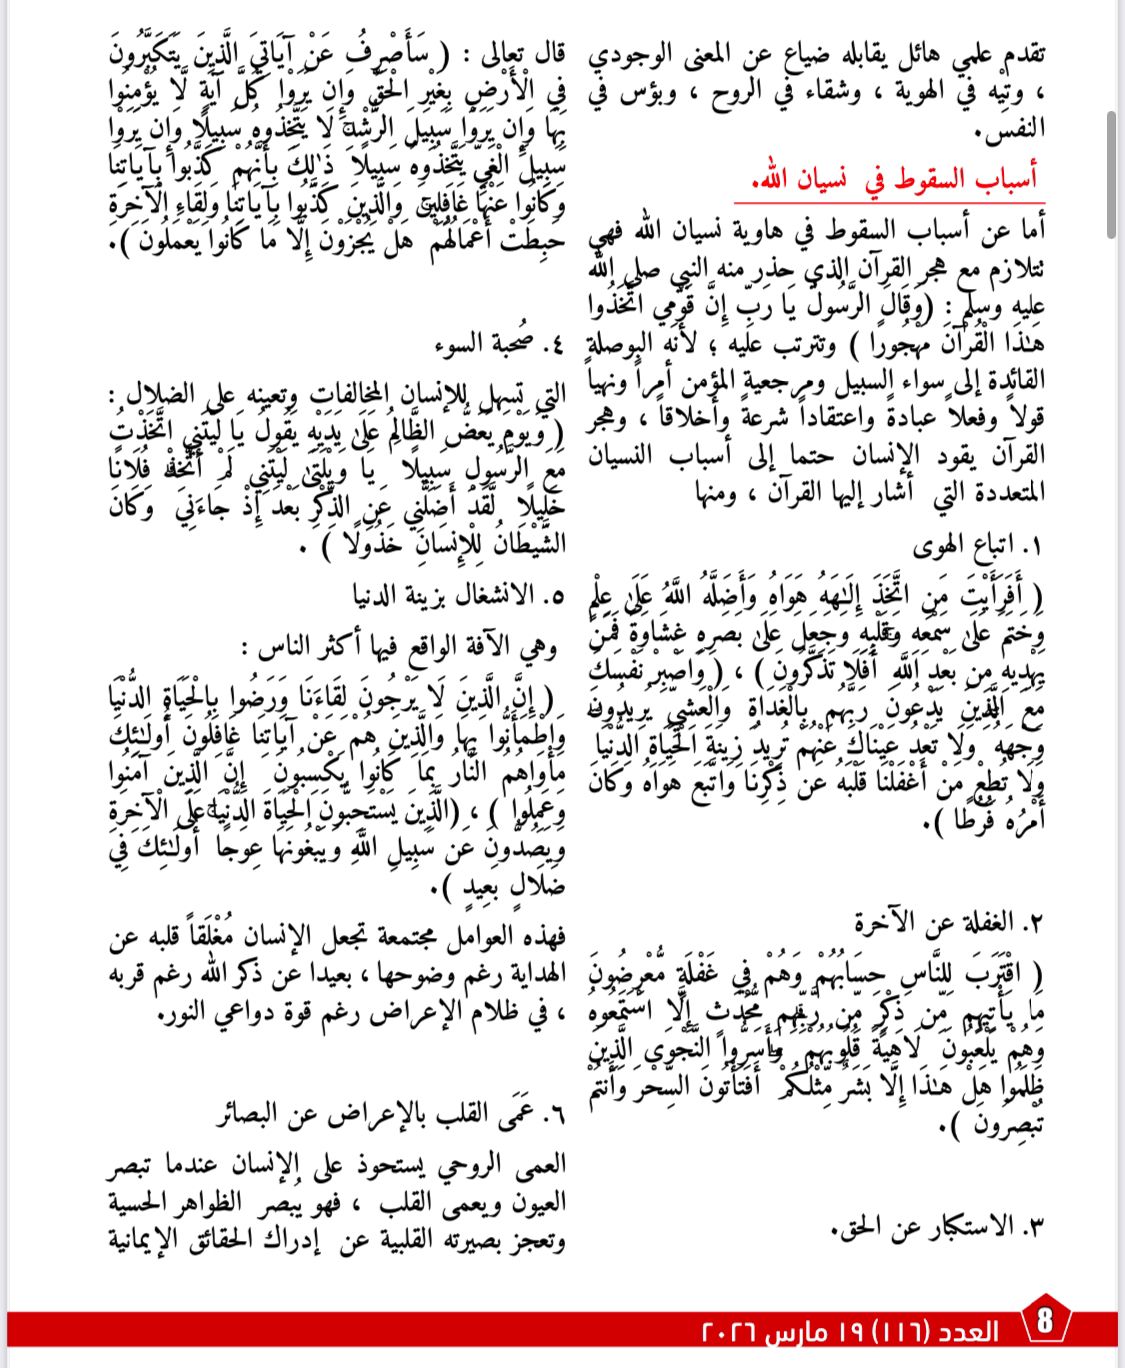 تقدم علمي هائل يقابله ضياع عن المعنى الوجودي
، وتِيْه في الهوية ، وشقاء في الروح ، وبؤس في
النفس.
أسباب السقوط في نسيان الله.
أما عن أسباب السقوط في هاوية نسيان الله فهي
تتلازم مع هجر القرآن الذي حذر منه النبي صلى الله
عليه وسلم : (وَقَالَ الرَّسُولُ يَا رَبِّ إِنَّ قَوْمِي اتَّخَذُوا
هَـٰذَا الْقُرْآنَ مَهْجُورًا ) وتترتب عليه ؛ لأنه البوصلة
القائدة إلى سواء السبيل ومرجعية المؤمن أمراً ونهياً
قولاً وفعلاً عبادةً واعتقاداً شرعةً وأخلاقاً ، وهجر
القرآن يقود الإنسان حتما إلى أسباب النسيان
المتعددة التي أشار إليها القرآن ، ومنها
١. اتباع الهوى
( أَفَرَأَيْتَ مَنِ اتَّخَذَ إِلَـٰهَهُ هَوَاهُ وَأَضَلَّهُ اللَّهُ عَلَىٰ عِلْمٍ
وَخَتَمَ عَلَىٰ سَمْعِهِ وَقَلْبِهِ وَجَعَلَ عَلَىٰ بَصَرِهِ غِشَاوَةً فَمَن
يَهْدِيهِ مِن بَعْدِ اللَّهِ ۚ أَفَلَا تَذَكَّرُونَ ) ، ( وَاصْبِرْ نَفْسَكَ
مَعَ الَّذِينَ يَدْعُونَ رَبَّهُم بِالْغَدَاةِ وَالْعَشِيِّ يُرِيدُونَ
وَجْهَهُ ۖ وَلَا تَعْدُ عَيْنَاكَ عَنْهُمْ تُرِيدُ زِينَةَ الْحَيَاةِ الدُّنْيَا ۖ
وَلَا تُطِعْ مَنْ أَغْفَلْنَا قَلْبَهُ عَن ذِكْرِنَا وَاتَّبَعَ هَوَاهُ وَكَانَ
أَمْرُهُ فُرُطًا ).
٢. الغفلة عن الآخرة
( اقْتَرَبَ لِلنَّاسِ حِسَابُهُمْ وَهُمْ فِي غَفْلَةٍ مُّعْرِضُونَ
مَا يَأْتِيهِم مِّن ذِكْرٍ مِّن رَّبِّهِم مُّحْدَثٍ إِلَّا اسْتَمَعُوهُ
وَهُمْ يَلْعَبُونَ لَاهِيَةً قُلُوبُهُمْ ۗ وَأَسَرُّوا النَّجْوَى الَّذِينَ
ظَلَمُوا هَلْ هَـٰذَا إِلَّا بَشَرٌ مِّثْلُكُمْ ۖ أَفَتَأْتُونَ السِّحْرَ وَأَنتُمْ
تُبْصِرُونَ ).
٣. الاستكبار عن الحق.
قال تعالى : ( سَأَصْرِفُ عَنْ آيَاتِيَ الَّذِينَ يَتَكَبَّرُونَ
فِي الْأَرْضِ بِغَيْرِ الْحَقِّ وَإِن يَرَوْا كُلَّ آيَةٍ لَّا يُؤْمِنُوا
بِهَا وَإِن يَرَوْا سَبِيلَ الرُّشْدِ لَا يَتَّخِذُوهُ سَبِيلًا وَإِن يَرَوْا
سَبِيلَ الْغَيِّ يَتَّخِذُوهُ سَبِيلًا ۚ ذَٰلِكَ بِأَنَّهُمْ كَذَّبُوا بِآيَاتِنَا
وَكَانُوا عَنْهَا غَافِلِينَ وَالَّذِينَ كَذَّبُوا بِآيَاتِنَا وَلِقَاءِ الْآخِرَةِ
حَبِطَتْ أَعْمَالُهُمْ ۚ هَلْ يُجْزَوْنَ إِلَّا مَا كَانُوا يَعْمَلُونَ ).
٤. صُحبة السوء
التي تسهل للإنسان المخالفات وتعينه على الضلال :
( وَيَوْمَ يَعَضُّ الظَّالِمُ عَلَىٰ يَدَيْهِ يَقُولُ يَا لَيْتَنِي اتَّخَذْتُ
مَعَ الرَّسُولِ سَبِيلًا يَا وَيْلَتَىٰ لَيْتَنِي لَمْ أَتَّخِذْ فُلَانًا
خَلِيلًا لَّقَدْ أَضَلَّنِي عَنِ الذِّكْرِ بَعْدَ إِذْ جَاءَنِي ۗ وَكَانَ
الشَّيْطَانُ لِلْإِنسَانِ خَذُولًا ) .
٥. الانشغال بزينة الدنيا
وهي الآفة الواقع فيها أكثر الناس :
( إِنَّ الَّذِينَ لَا يَرْجُونَ لِقَاءَنَا وَرَضُوا بِالْحَيَاةِ الدُّنْيَا
وَاطْمَأَنُّوا بِهَا وَالَّذِينَ هُمْ عَنْ آيَاتِنَا غَافِلُونَ أُولَـٰئِكَ
مَأْوَاهُمُ النَّارُ بِمَا كَانُوا يَكْسِبُونَ إِنَّ الَّذِينَ آمَنُوا
وَعَمِلُوا ) ، (الَّذِينَ يَسْتَحِبُّونَ الْحَيَاةَ الدُّنْيَا عَلَى الْآخِرَةِ
وَيَصُدُّونَ عَن سَبِيلِ اللَّهِ وَيَبْغُونَهَا عِوَجًا ۚ أُولَـٰئِكَ فِي
ضَلَالٍ بَعِيدٍ ).
فهذه العوامل مجتمعة تجعل الإنسان مُغْلَقاً قلبه عن
الهداية رغم وضوحها ، بعيدا عن ذكر الله رغم قربه
، في ظلام الإعراض رغم قوة دواعي النور.
٦. عَمَى القلب بالإعراض عن البصائر
العمى الروحي يستحوذ على الإنسان عندما تبصر
العيون ويعمى القلب ، فهو يُبصر الظواهر الحسية
وتعجز بصيرته القلبية عن إدراك الحقائق الإيمانية
8
العدد (١١٦) ١٩ مارس ٢٠٢٦